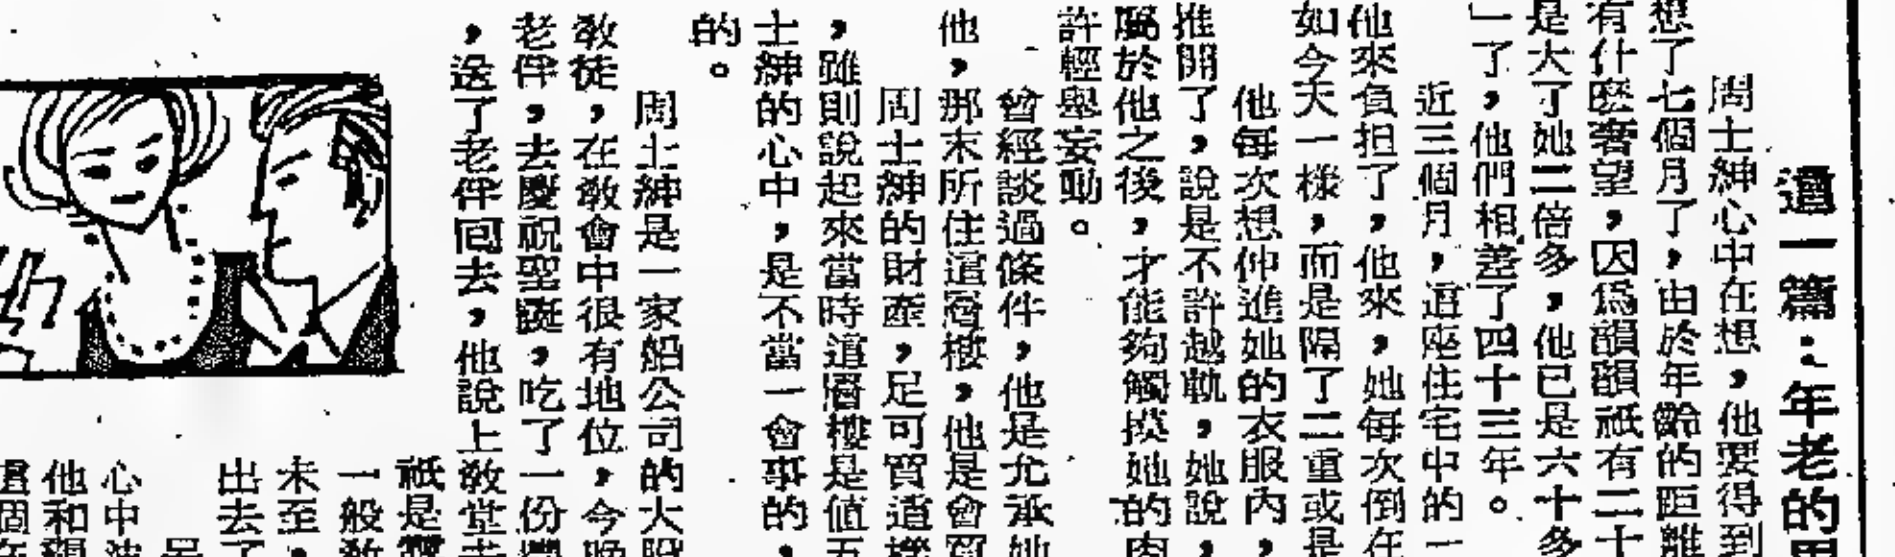 這一篇：年老的周
周士紳心中在想，他要得到
想了七個月了，由於年齡的距離
有什麽奢望，因爲韻韻祇有二十
是大了她二倍多，他已是六十多
」了，他們相差了四十三年。
近三個月，這座住宅中的一
他來負担了，他來，她每次倒在
如今天一樣，而是隔了二重或是
他每次想伸進她的衣服內，
推開了，說是不許越軌，她說，
屬於他之後，才能夠觸摸她的肉
許輕舉妄動。
曾經談過條件，他是允承她
他，那末所住這層樓，他是會買
周士紳的財產，足可買這樓
，雖則說起來當時這層樓是值五
士紳的心中，是不當一會事的，
的。
周士紳是一家船公司的大股
敎徒，在敎會中很有地位，今晚
老伴，去慶祝聖誕，吃了一份
，送了老伴囘去，他說上敎堂去
祇是
一般敎
未至，
出去了
心中
他和
這個在